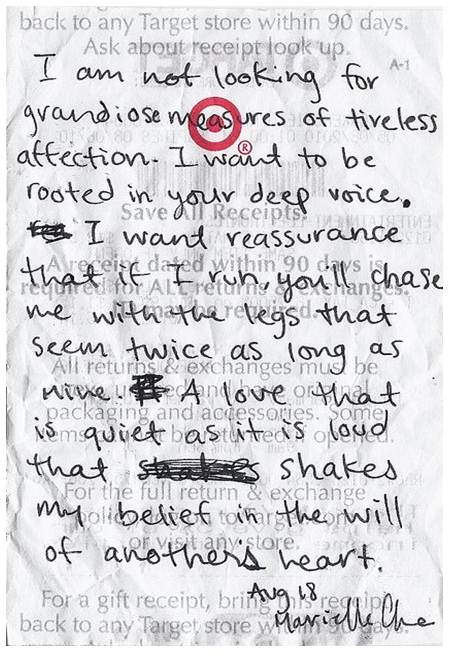 back to any Target store within 90 days.
Ask about receipt look up.
A-1
I am not looking for
grandiose measures of tireless
affection. I want to be
rooted in your deep voice.
Save All Receipts!
I want reassurance
that if I run, you'll chase
A receipt dated within 90 days is
required for ALL returns & exchanges.
me with the legs that
seem twice as long as
All returns & exchanges must be
mine. A love that
packaging and accessories. Some
is quiet as it is loud
that shakes shakes
For the full return & exchange
my belief in the will
of another's heart.
or visit any store.
Aug 18
For a gift receipt, bring this receipt
Marielle
back to any Target store within 90 days.